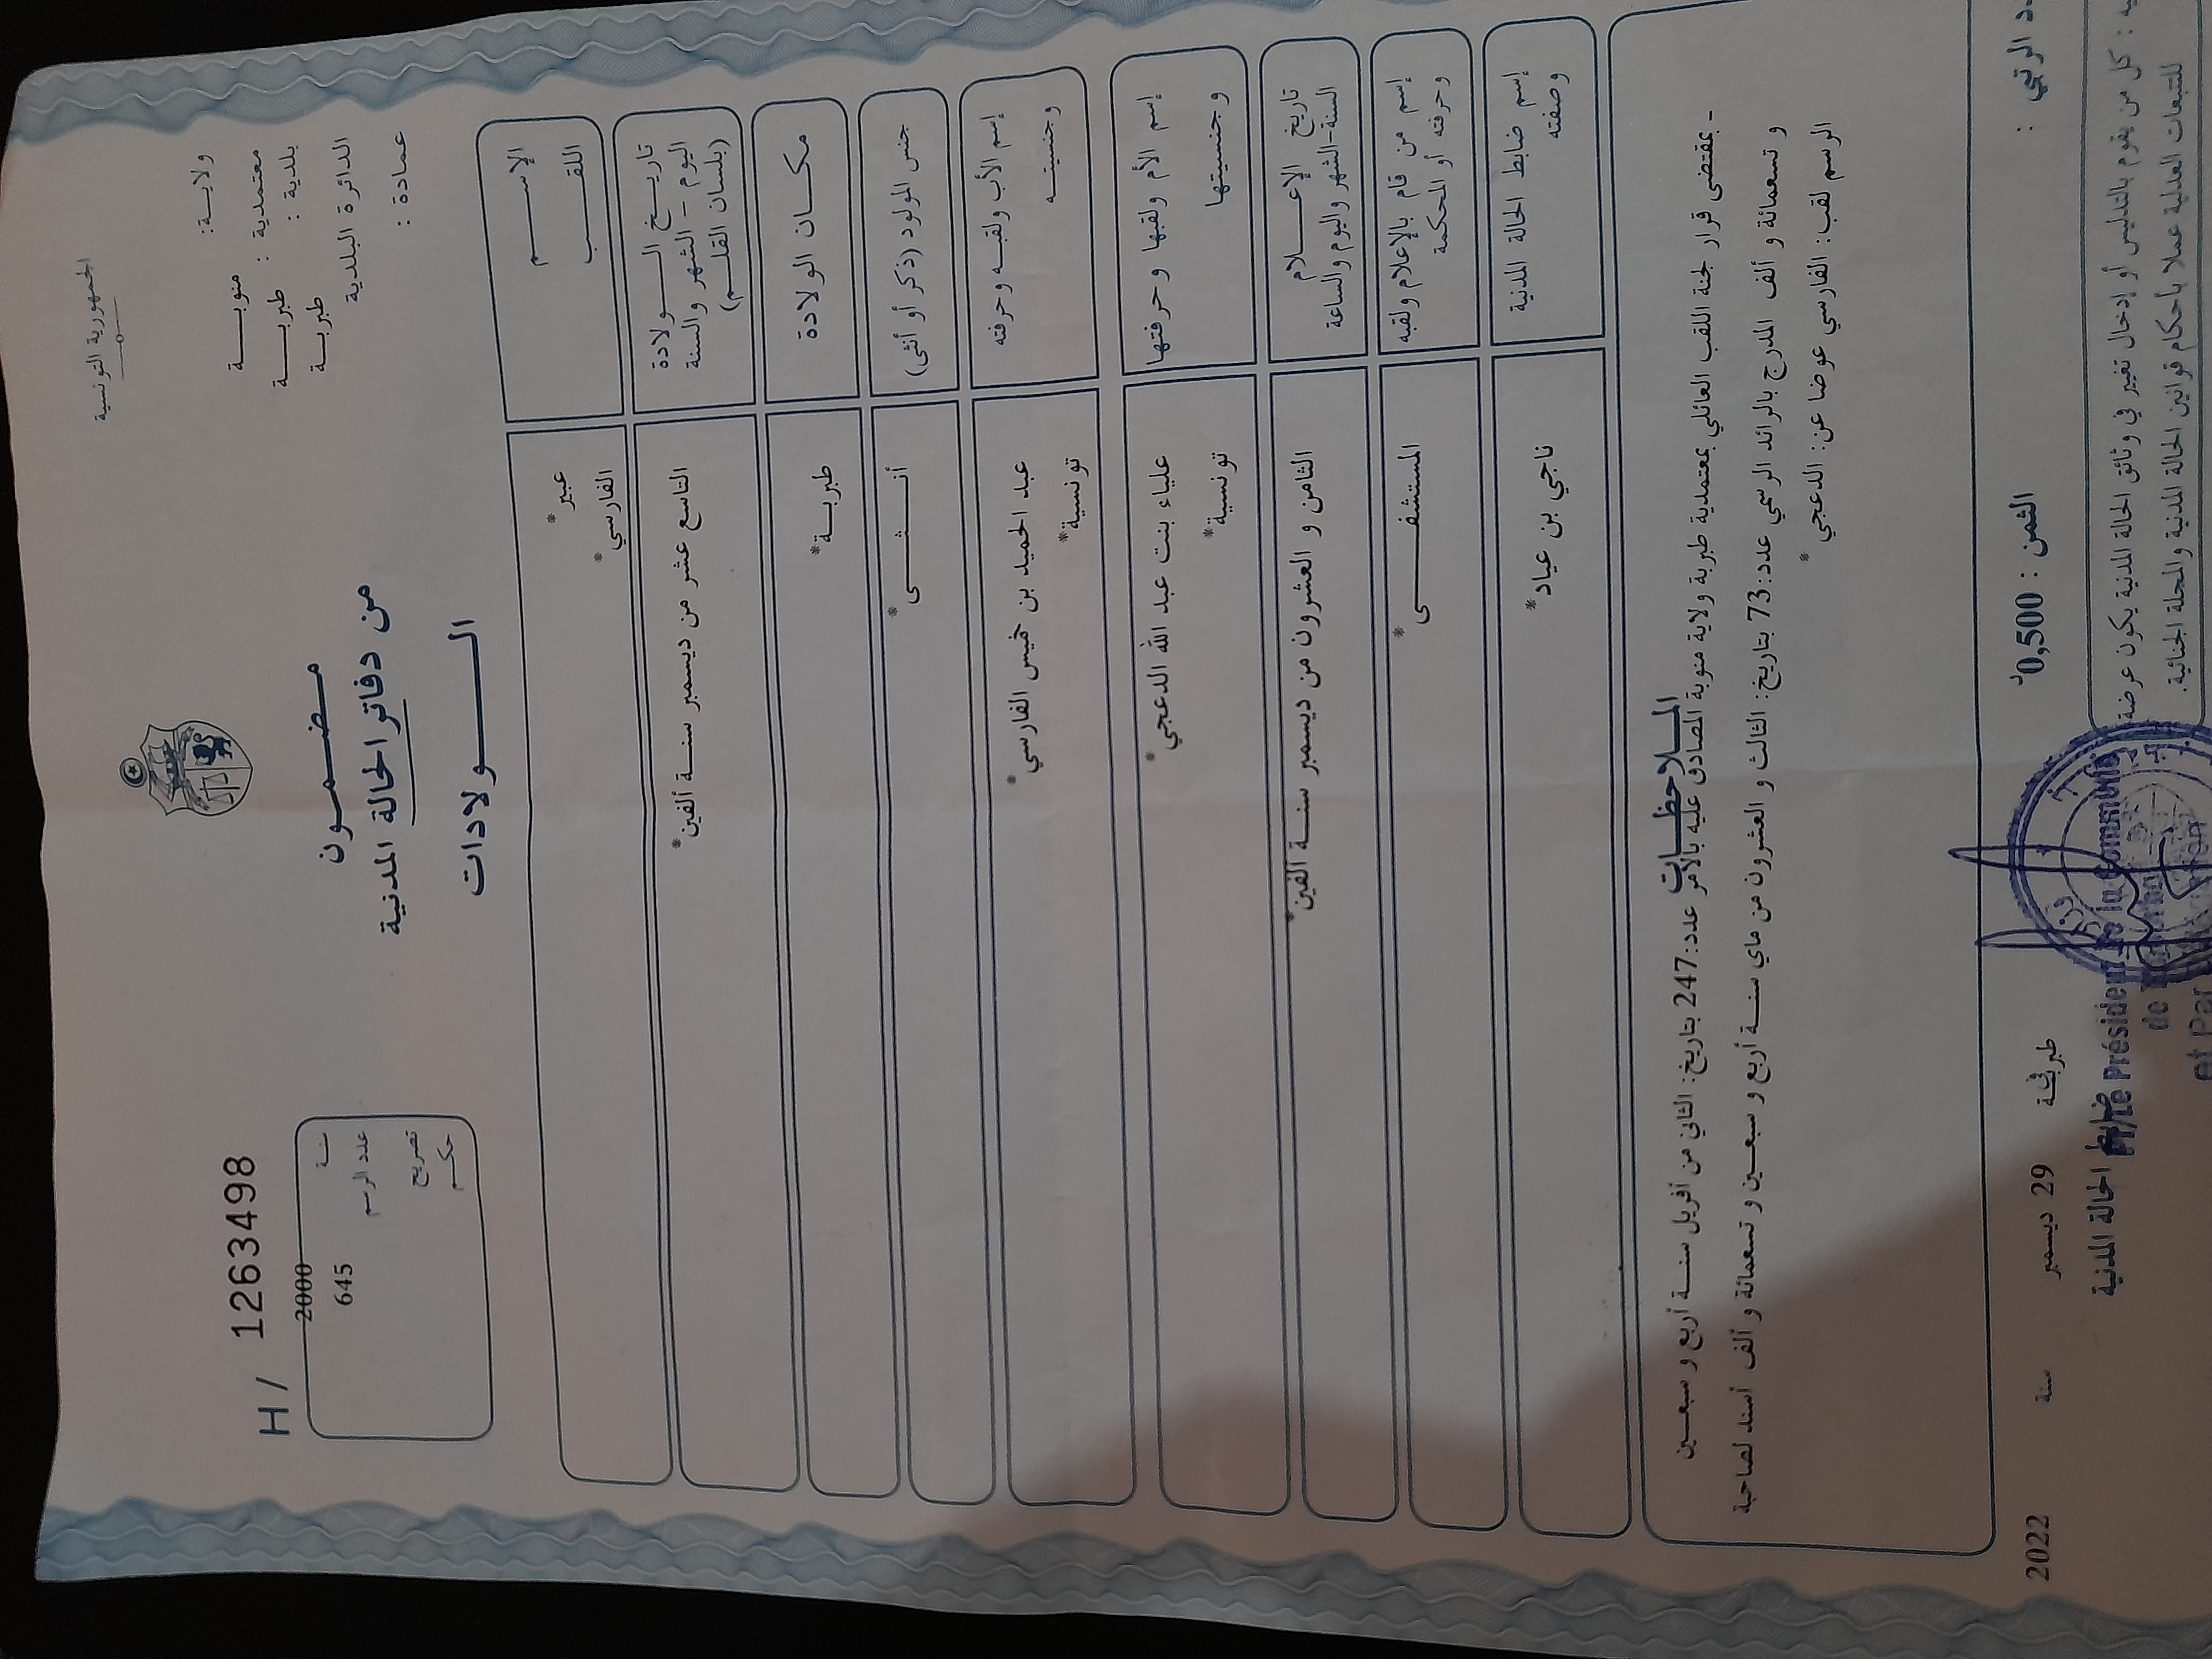 الجمهورية التونسية
ولاية: منوبـــة
معتمدية : طبربـــة
بلدية : طبربـــة
الدائرة البلدية
عمادة :
H/ 1263498
سنــة 2000
عدد الرسم 645
تصريح
حكـــم
مـضـمــون
من دفاتر الحالة المدنية
الـــولادات
الإســـم عبير*
اللقـــب الفارسي*
تاريـخ الـــولادة التاسع عشر من ديسمبر سنـــة ألفين*
اليوم - الشهر والسنة
(بلسان القلــم)
مكـــان الولادة طبربـــة*
جنس المولود (ذكر أو أنثى) أنـــثـــى*
إسم الأب ولقبـه وحرفته عبد الحميد بن خميس الفارسي*
وجنسيتـــه تونسية*
إسم الأم ولقبها وحرفتها علياء بنت عبد الله الدعجي*
وجنسيتها تونسية*
تاريخ الإعـــلام الثامن و العشرون من ديسمبر سنـــة الفين*
السنة-الشهر واليوم والساعة
إسم من قام بالإعلام ولقبه المستشفـــى*
وحرفته أو المحكمة
إسم ضابط الحالة المدنية ناجي بن عياد*
وصفته
المـــلاحظـــات
- بمقتضى قرار لجنة اللقب العائلي بمعتمدية طبربة ولاية منوبة المصادق عليه بالأمر عدد:247 بتاريخ: الثاني من أفريل سنـــة أربع و سبعـــين
و تسعمائة و ألف المدرج بالرائد الرسمي عدد:73 بتاريخ: الثالث و العشرون من ماي سنـــة أربع و سبعـــين و تسعمائة و ألف أسند لصاحبة
الرسم لقب: الفارسي عوضا عن: الدعجي*
الرتبي : الثمن : 0,500د طبربة 29 ديسمبر سنة 2022
: كل من يقوم بالتدليس أو إدخال تغيير في وثائق الحالة المدنية يكون عرضة
للتتبعات العدلية عملا بأحكام قوانين الحالة المدنية والمجلة الجنائية.
ضابط الحالة المدنية
P/Le Président de la Commune
de
et Par